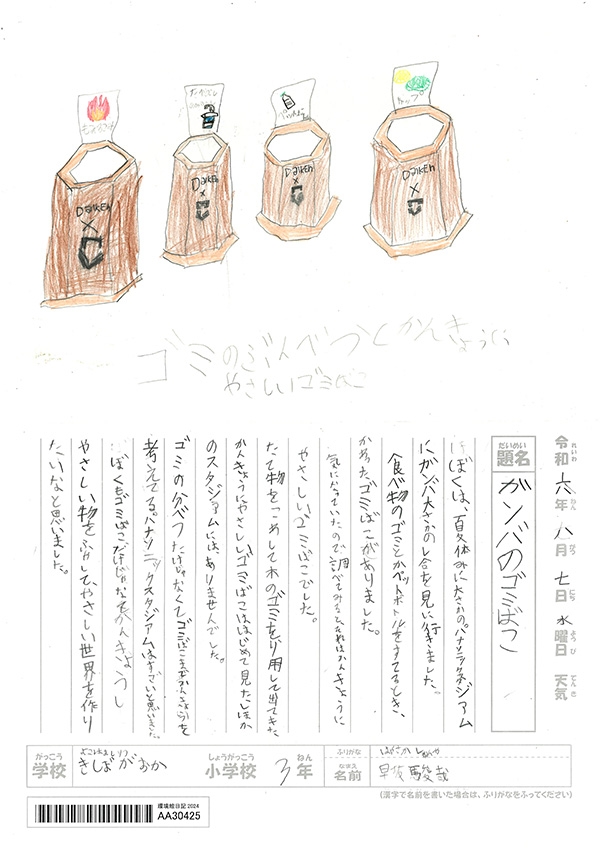 もえるゴミ
ペットボトル
カップ
Daiken
×
Daiken
×
Daiken
×
Daiken
×
ゴミのぶんべつ かんきょうに
やさしいゴミばこ
令和六年八月七日水曜日 天気
れいわ ねん がつ にち ようび てんき
だいめい
題名 ガンバのゴミばこ
ぼくは、夏休みに大さかのパナソニックスタジアム
にガンバ大さかのし合を見に行きました。
食べ物のゴミとかペットボトルをすてるとき、
かわったゴミばこがありました。
気になっていたので調べてみるとそれはかんきょうに
やさしいゴミばこでした。
たて物をこわして木のゴミをり用して出てきた
かんきょうにやさしいゴミばこははじめて見たしほか
のスタジアムには、ありませんでした。
ゴミの分べつだけじゃなくてゴミばこまでかんきょうを
考えてる。パナソニックスタジアムはすごいと思いました。
ぼくもゴミばこだけじゃなくてかんきょうに
やさしい物をふやして、やさしい世界を作り
たいなと思いました。
がっこう しょうがっこう ねん ふりがな
学校 きしばがおか 小学校 3年
なまえ
名前 早坂 駿哉
(漢字で名前を書いた場合は、ふりがなをふってください)
環境絵日記 2024
AA30425